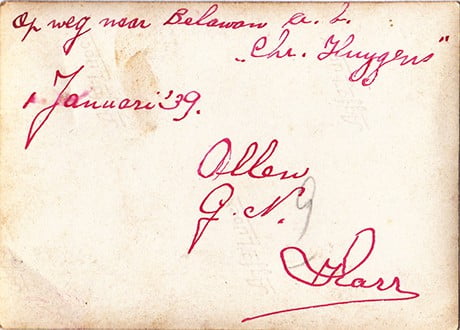 Op weg naar Belawan a. b.
„Chr. Huygens"
1 Januari '39.
Allen
G. N.
9